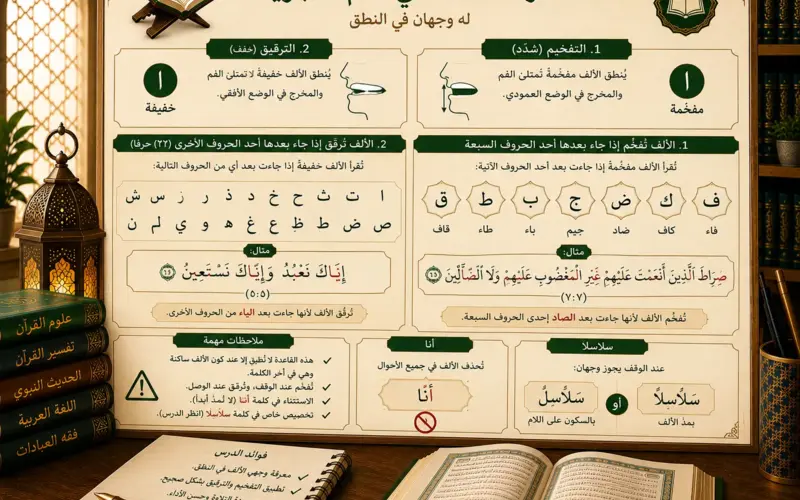 له وجهان في النطق
1. التفخيم (شدّد)
يُنطق الألف مفخّمةً تُمتلئ الفم
والمخرج في الوضع العمودي.
ا
مفخّمة
2. الترقيق (خفف)
يُنطق الألف خفيفةً لا تمتلئ الفم
والمخرج في الوضع الأفقي.
ا
خفيفة
1. الألف تُفخَّم إذا جاء بعدها أحد الحروف السبعة
تُقرأ الألف مفخّمةً إذا جاءت بعد أحد الحروف الآتية:
ف ك ض ج ب ط ق
فاء كاف ضاد جيم باء طاء قاف
مثال:
صِرَاطَ ٱلَّذِينَ أَنْعَمْتَ عَلَيْهِمْ غَيْرِ الْمَغْضُوبِ عَلَيْهِمْ وَلَا الضَّالِّينَ
(٧:٧)
تُفخَّم الألف لأنها جاءت بعد الصاد إحدى الحروف السبعة.
2. الألف تُرقَّق إذا جاء بعدها أحد الحروف الأخرى (٢٢ حرفا)
تُقرأ الألف خفيفةً إذا جاءت بعد أي من الحروف التالية:
ا ت ث ح خ د ذ ر ز س ش
ص ض ط ظ ع غ ه و ي لم ن
مثال:
إِيَّاكَ نَعْبُدُ وَإِيَّاكَ نَسْتَعِينُ
(٥:٥)
تُرقَّق الألف لأنها جاءت بعد الياء من الحروف الأخرى.
سلاسلا
عند الوقف يجوز وجهان:
سَلَاسِلَاْ
بمد الألف
أو
سَلَاسِلْ
بالسكون على اللام
أنا
تُحذف الألف في جميع الأحوال
أَنَا
ملاحظات مهمة
هذه القاعدة لا تُطبق إلا عند كون الألف ساكنة
وهي في آخر الكلمة.
تُفخَّم عند الوقف، وتُرقق عند الوصل.
الاستثناء في كلمة أَنَا (لا تُمدّ أبداً).
تخصيص خاص في كلمة سلاسلا (انظر الدرس).
علوم القرآن
تفسير القرآن
الحديث النبوي
اللغة العربية
فقه العبادات
فوائد الدرس
معرفة وجهي الألف في النطق.
تطبيق التفخيم والترقيق بشكل صحيح.
التلاوة وحسن الأداء.